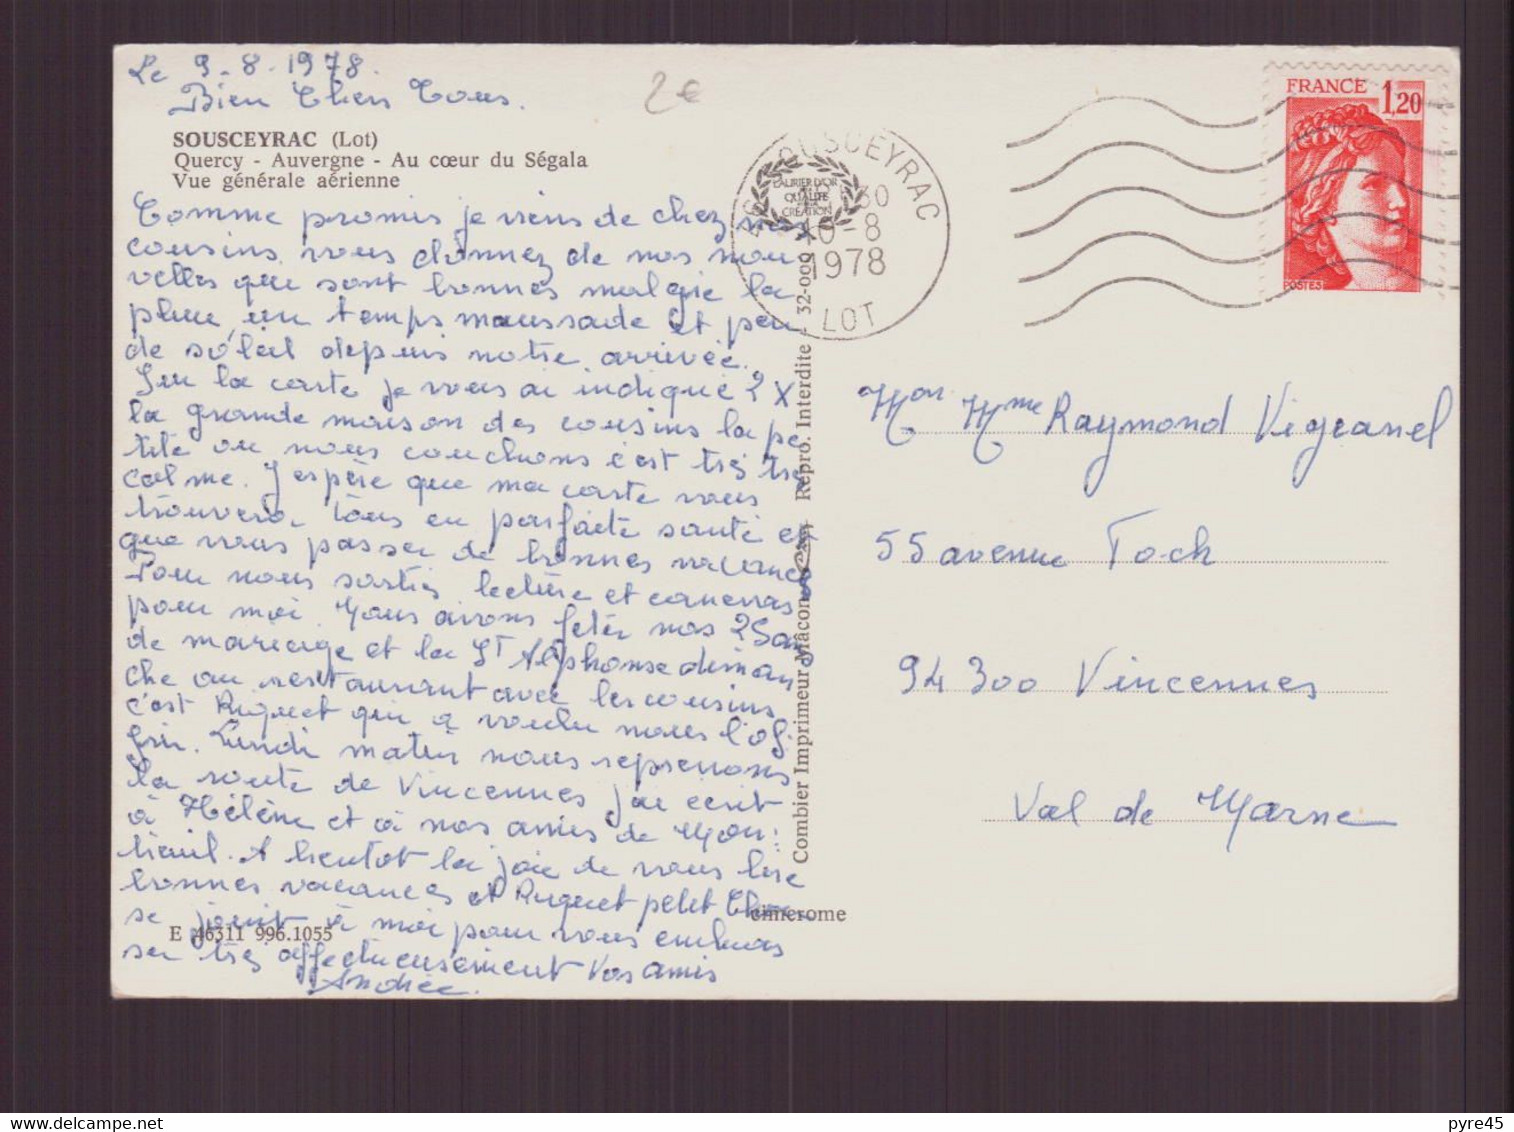 Le 9-8-1978.
Bien Chers Tous.
SOUSCEYRAC (Lot)
Quercy - Auvergne - Au cœur du Ségala
Vue générale aérienne
Comme promis je viens de chez nos
cousins vous donnez de nos nou
velles que sont bonnes malgré la
pluie, un temps maussade et peu
de soleil depuis notre arrivée.
Sur la carte je vous ai indiqué 2 X
la grande maison des cousins la pe
tite ou nous couchons c'est très très
calme. J'espère que ma carte vous
trouvera tous en parfaite santé et
que vous passer de bonnes vacances
Pour nous sorties lecture et canevas
pour moi. Nous avons fêter nos 25 ans
de mariage et la St Alphonse diman
che au restaurant avec les cousins
c'est Huguet qui a voulu nous l'of
frir. Lundi matin nous reprenons
la route de Vincennes j'ai écrit
à Hélène et à nos amies de Mon:
treuil. A bientot la joie de vous lire
bonnes vacances et Huguet petet
se joint à moi pour vous embras
ser très affectueusement Vos amis
Andrée.
E 46311 996.1055
cimerome
Combier Imprimeur Mâcon Repro. Interdite - 32-009
2€
SOUSCEYRAC
30
10-8
1978
LOT
LAURIER D'OR
QUALITÉ
CRÉATION
FRANCE 1,20
POSTES
Mon Mme Raymond Vigeanel
55 avenue Foch
94 300 Vincennes
Val de Marne
pyre45